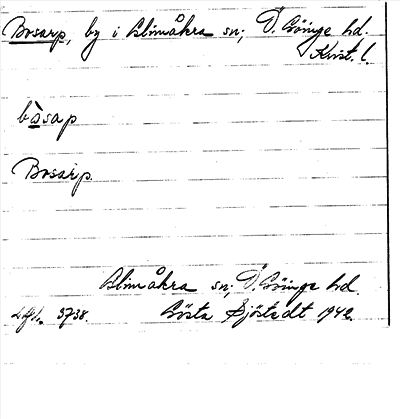 Bosarp, by i Glimåkra sn; Ö. Göinge hd.
Krist. l.
bòsap
Bosarp.
Glimåkra sn; Ö. Göinge hd.
3738. Gösta Sjöstedt 1942.